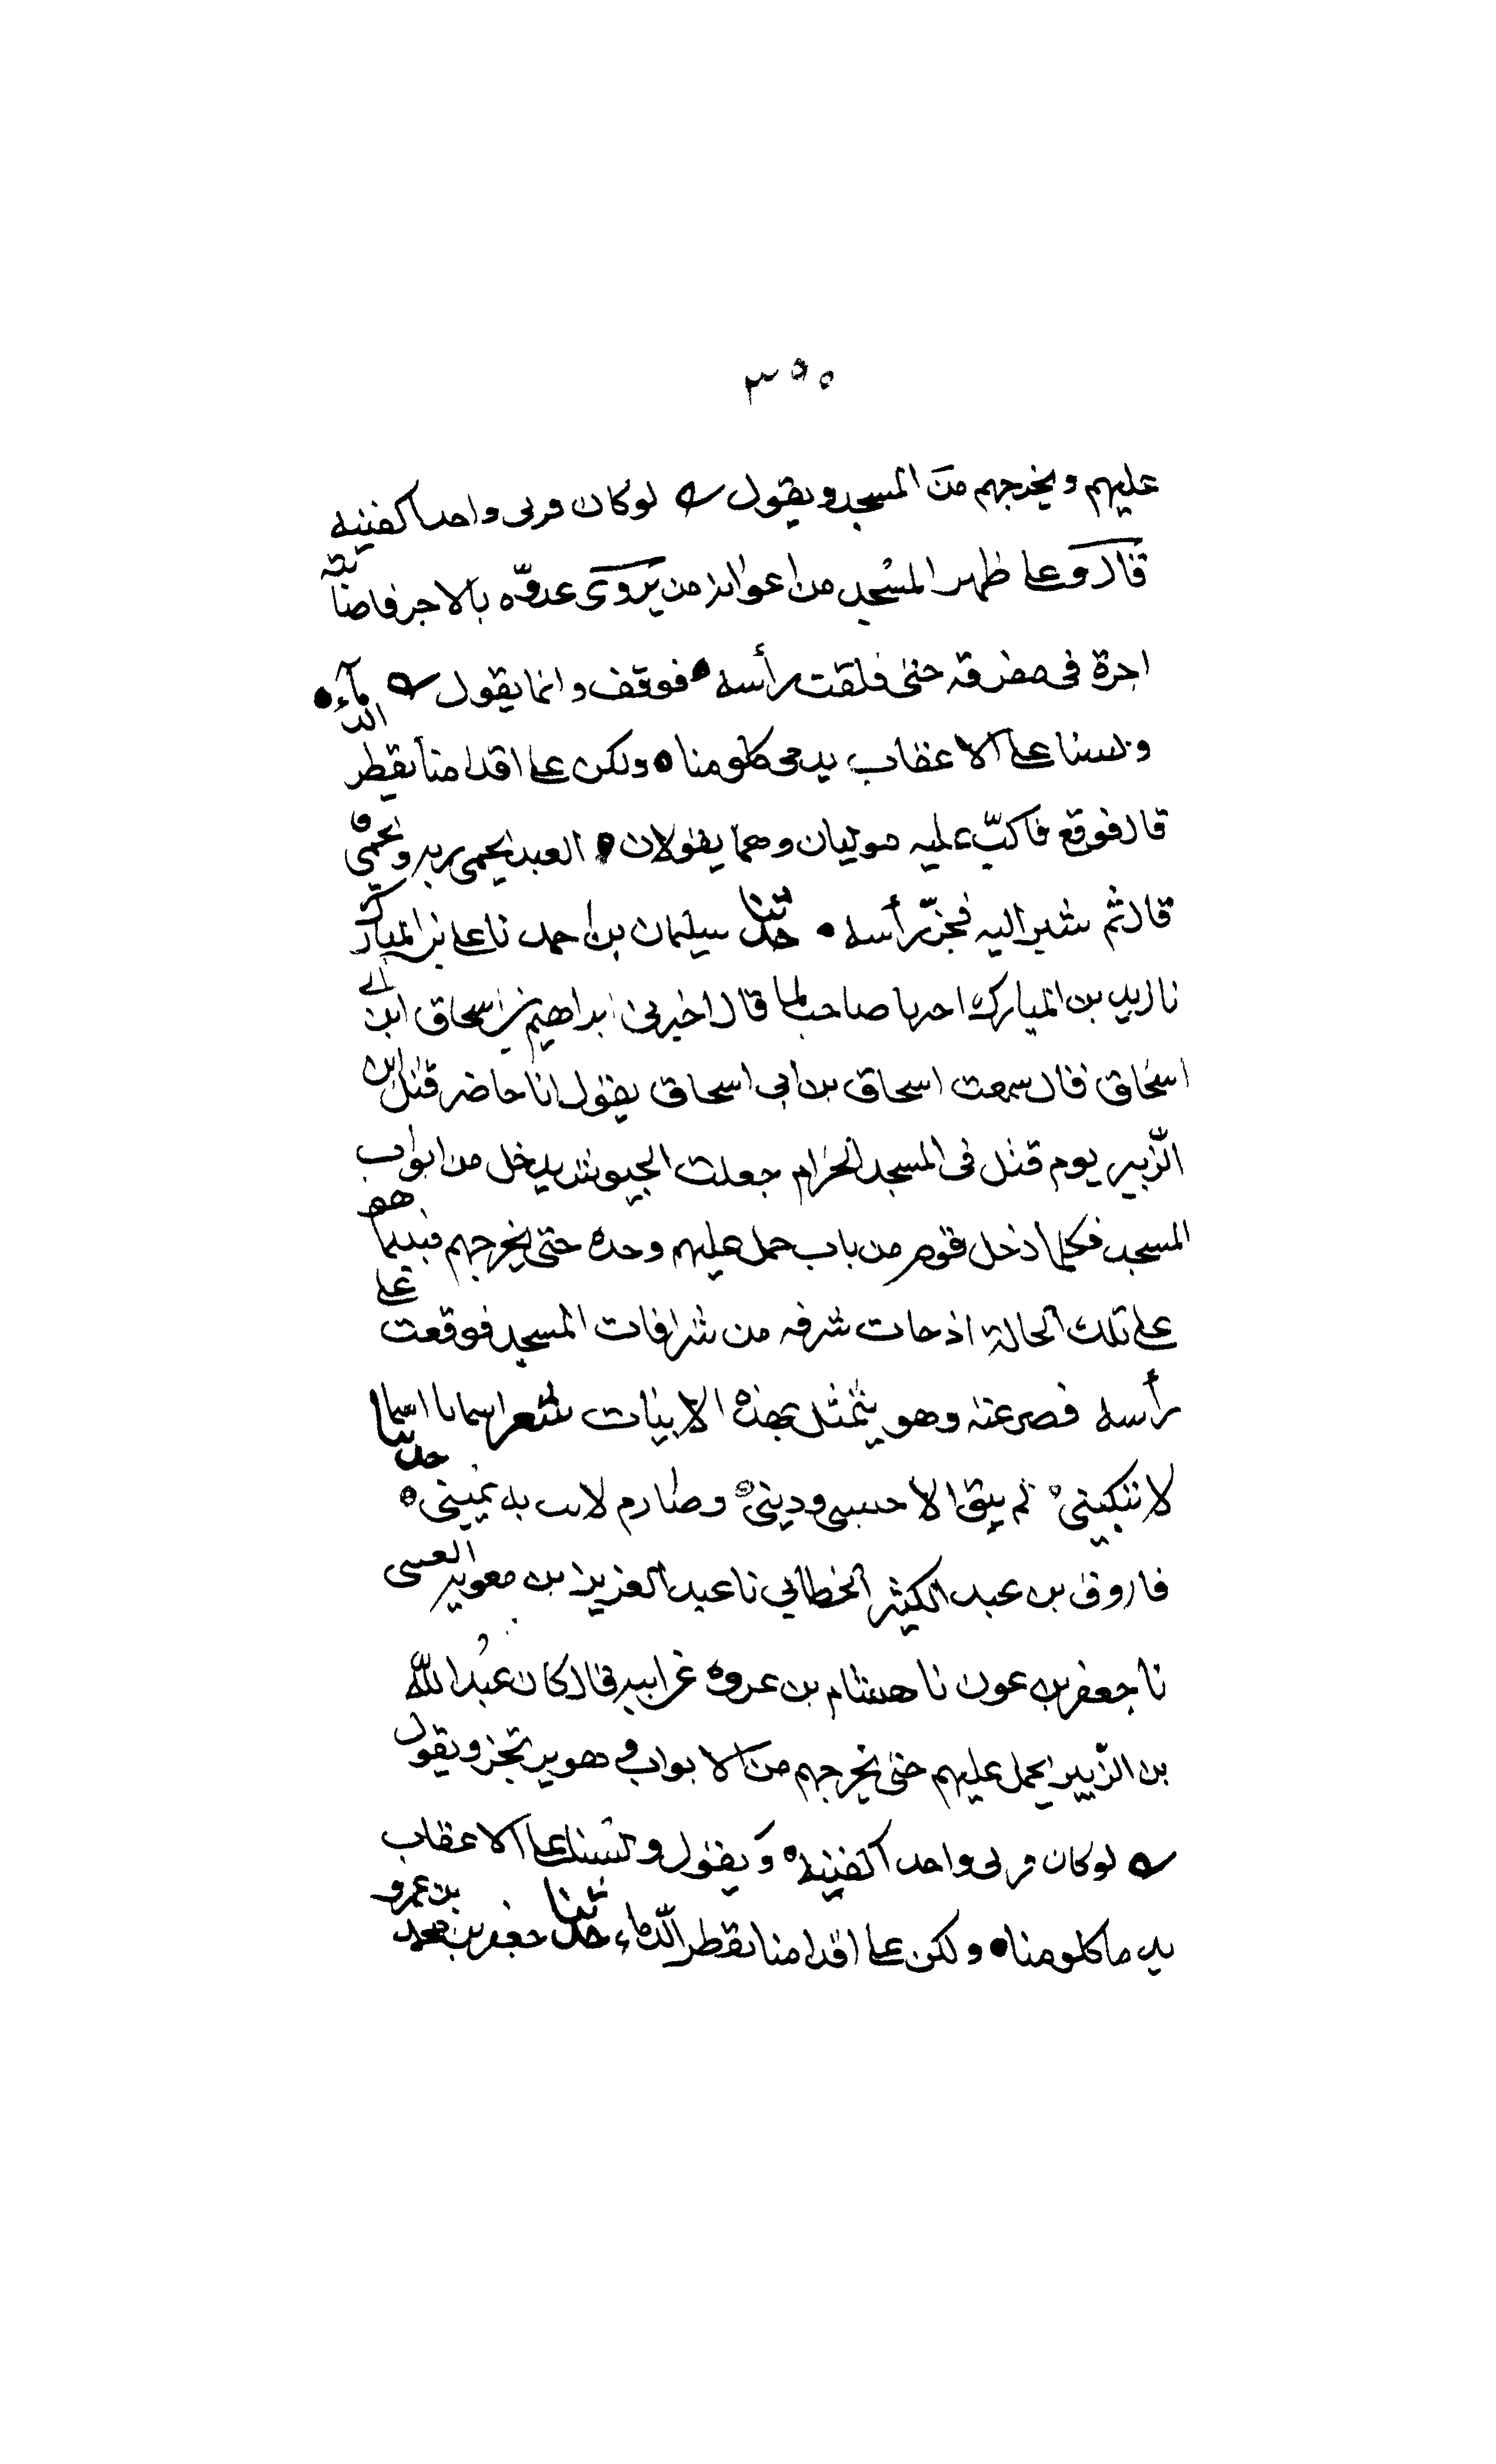 ٣٥٥
عليهم ويخرجهم من المسجد ويقول لوكان قرنى واحدا كفيته
قال وعلى ظهر المسجد من اعوانه من يروى عدوّه بالاجر فاصابته
اجرة فى مفرقه حتى فلقت رأسه فوقف وانما يقول
ولسنا على الاعقاب يدمى كلومنا ولكن على اقدامنا يقطر الدمآء
قال فوقع فاكبّ عليه موليان وهما يقولان العبد يحمى ربه ويحمى
قال ثم سير اليه فجزّ رأسه حدثنا سليمان بن احمد نا على بن المبارك
نا زيد بن المبارك صاحب لنا قال اخبرنى ابراهيم بن اسحاق ابن ابى
اسحاق قال سمعت اسحاق بن ابى اسحاق يقول انا حاضر قتل ابن
الزّبير يوم قتل فى المسجد الحرام جعلت الجيوش يدخل من ابواب
المسجد فكلما دخل قوم من باب حمل عليهم وحده حتى يخرجهم فبينما هو
على تلك الحالة اذ جات شرفه من شرافات المسجد فوقعت على
رأسه فصرعته وهو يتمثل بهذه الابيات شعر اسمايا اسما
لا تبكينى لم يبق الا حسبى ودينى وصارم لانت به يمينى حدثنا
فاروق بن عبد الكبير الخطابي نا عبد العزيز بن معويه العسى
نا جعفر بن عون نا هشام بن عروه عن ابيه قال كان عبد الله
بن الزّبير يحمل عليهم حتى يخرجهم من الابواب وهو يرتجز ويقول
لوكان قرنى واحدا كفيته ويقول ولسنا على الاعقاب
يدما كلومنا ولكن على اقدامنا يقطر الدّماء حدثنا جعفر بن محمد بن عمرو